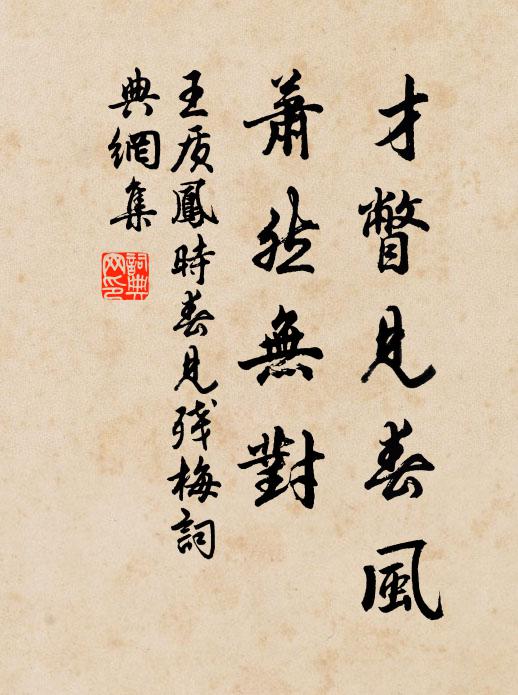 才瞥見春風
蕭然無對
王质鳳時春見殘梅詞
典網集
詞典網印